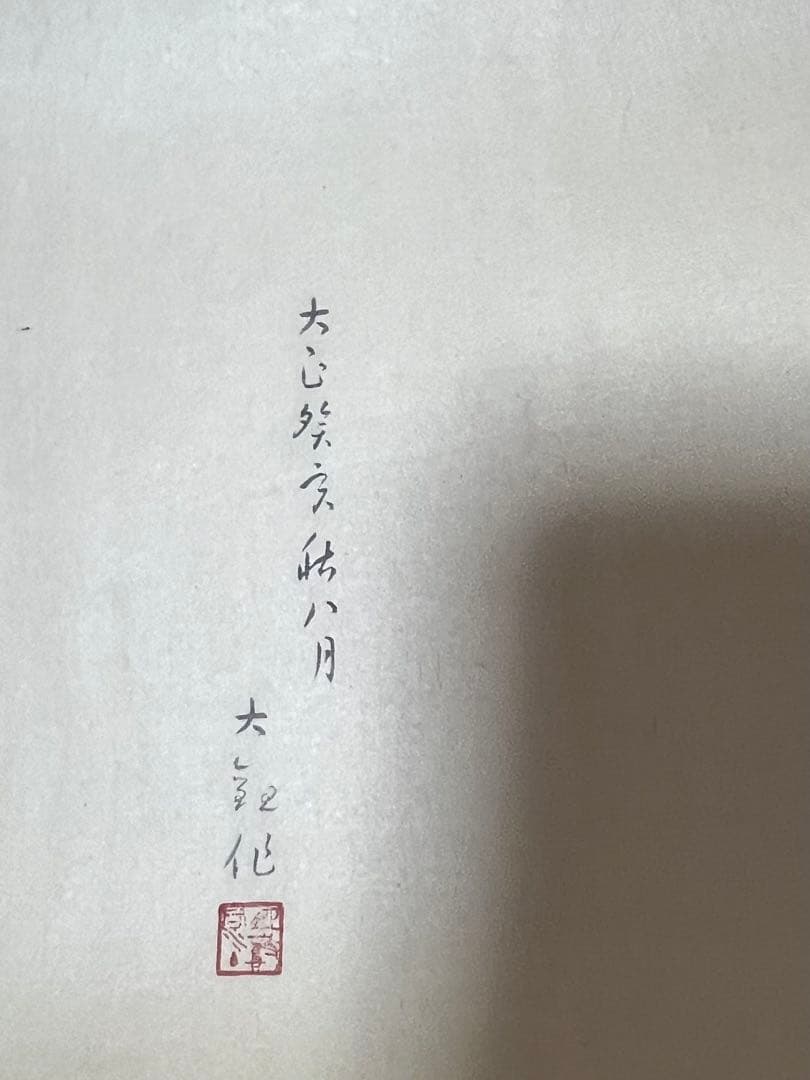 大正癸亥秋八月
大 作